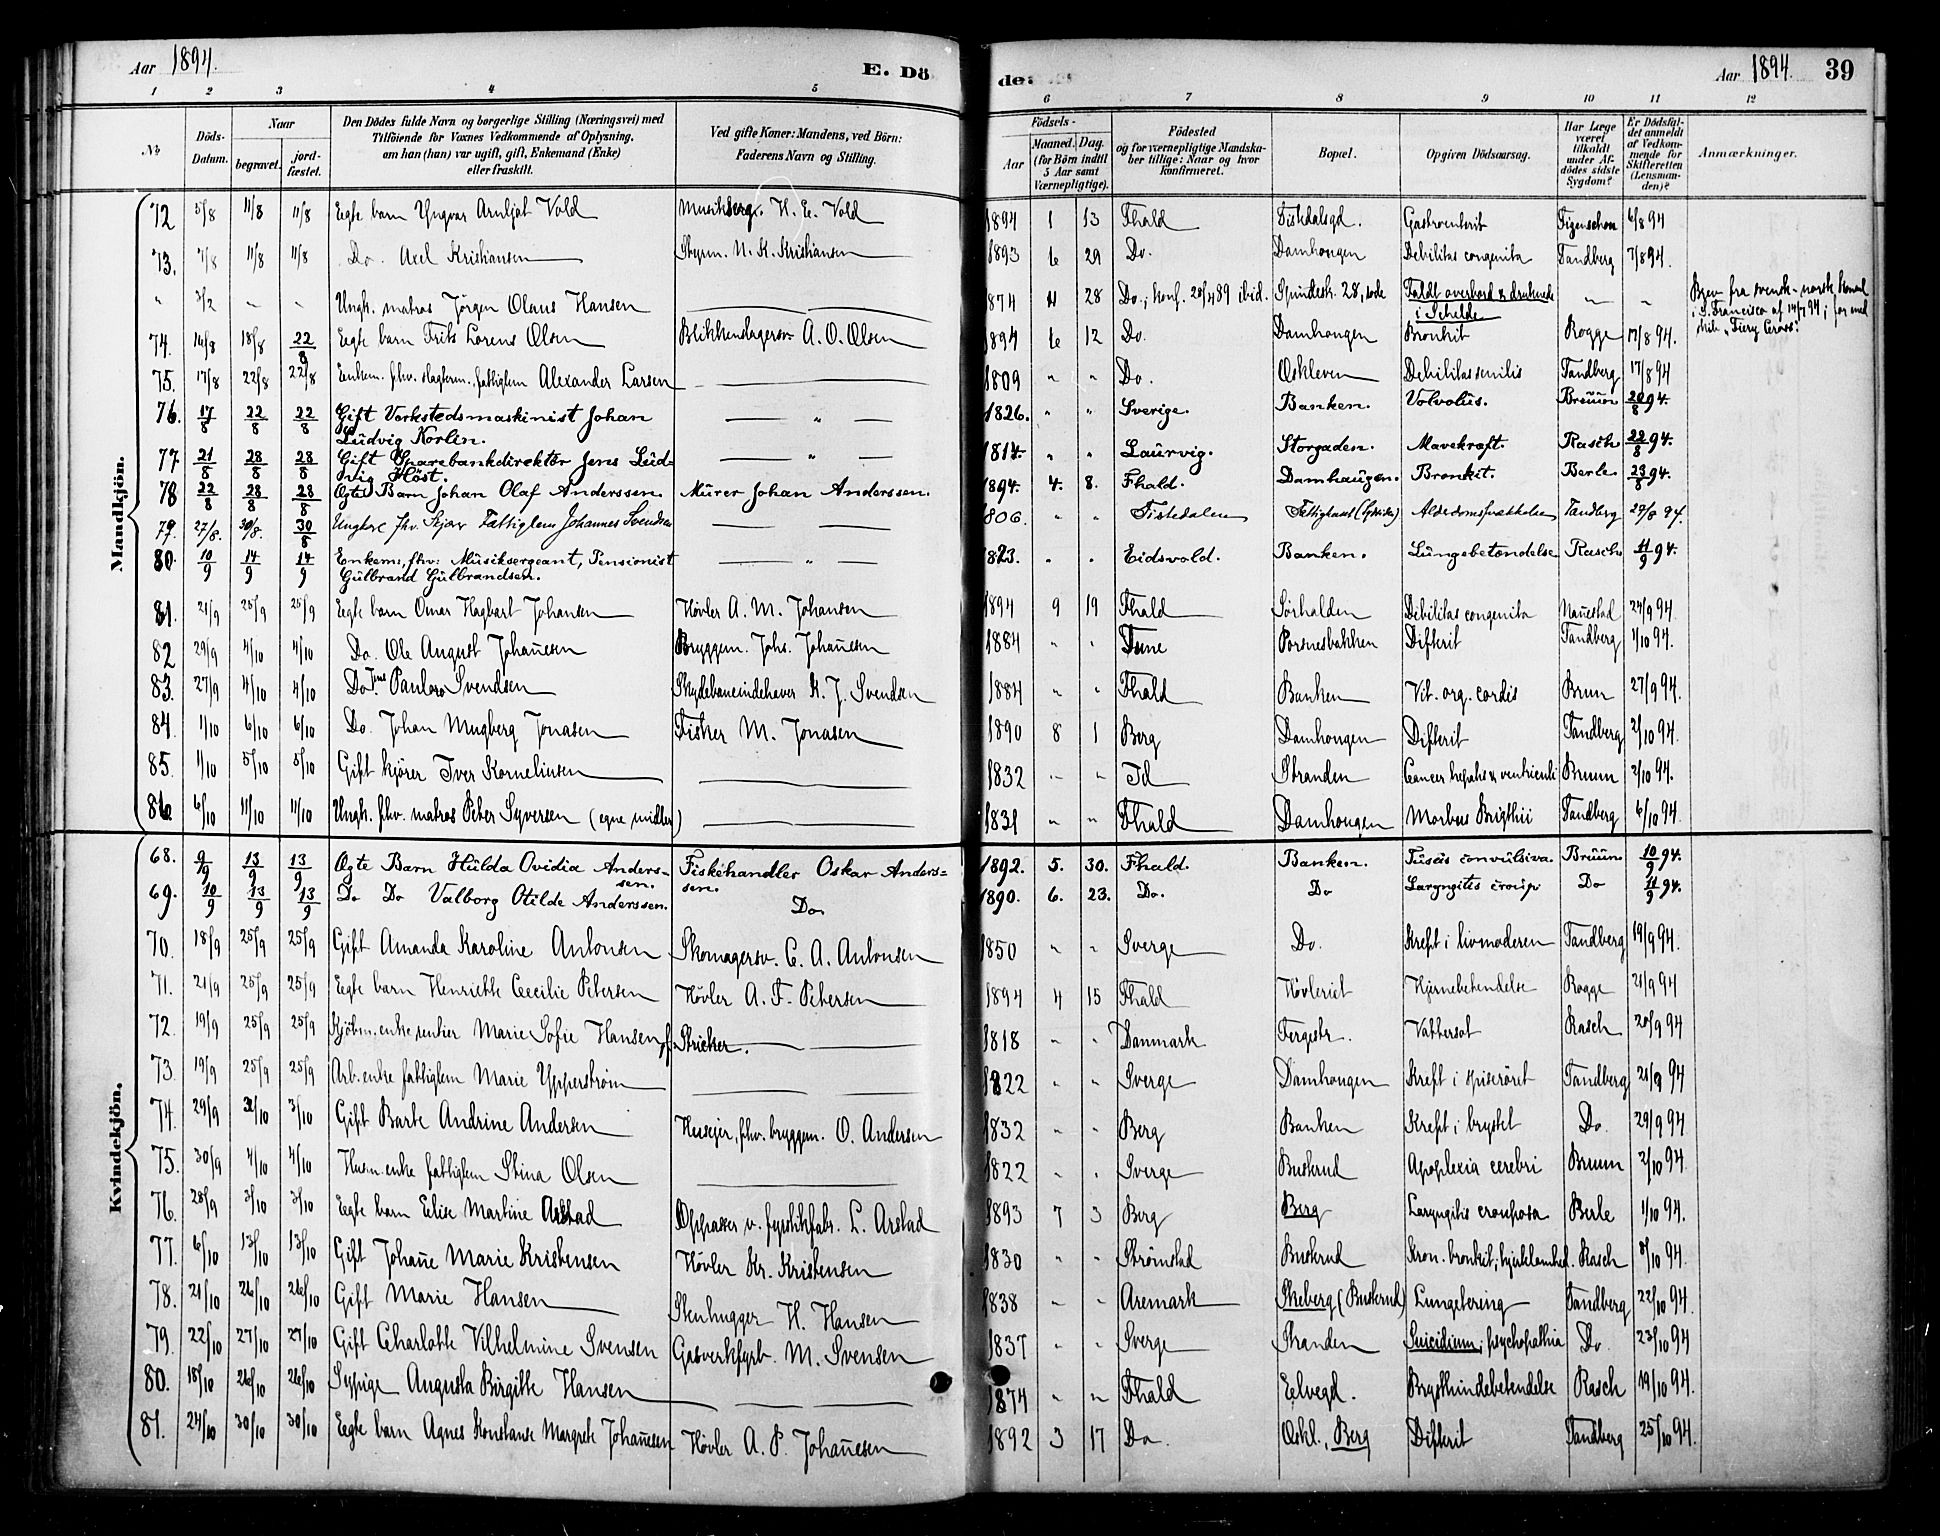 Aar 1894. E. Dö
de: Aar 1894. 39
1 2 3 4 5
6 7 8 9 10 11 12
№ Döds-Datum. Naar begravet. jord-fæstet. Den Dödes fulde Navn og borgerlige Stilling (Næringsvei) med Tilföiende for Voxnes Vedkommende af Oplysning, om han (hun) var ugift, gift, Enkemand (Enke) eller fraskilt. Ved gifte Koner: Mandens, ved Börn: Faderens Navn og Stilling.
Födsels- Aar Maaned. Dag. (for Börn indtil 5 Aar samt Værnepligtige). Födested og for værnepligtige Mandskaber tillige: Naar og hvor konfirmeret. Bopæl. Opgiven Dödsaarsag. Har Læge været tilkaldt under Afdödes sidste Sygdom? Er Dödsfaldet anmeldt af Vedkommende for Skifteretten (Lensmanden)? Anmærkninger.
Mandkjön.
72 5/8 11/8 11/8 Egte barn Yngvar Arnljot Vold Musikserg. H. E. Vold 1894 1 13 Fhald Fiskedalsgd. Gastroenterit 6/8 94
73. 7/8 11/8 11/8 Do. Axel Kristiansen Styrm. N. K. Kristiansen 1893 6 29 Do. Damhougen Debilitas congenita Tandberg 7/8 94.
" 3/2 — — Ungk. matros Jörgen Olaus Hansen 1874 4 28 Do.; konf. 28/4 89 ibid. 28, Faldt overbord & druknede i Schelde — — Brev fra svensk-norsk konsul i S. Francisco af 14/7 94; for med skib "Fiery Cross".
74. 14/8 18/8 22/8 Egte barn Frits Lorens Olsen Blikkenslagersv. A. O. Olsen 1894 6 12 Do. Damhougen Bronkit Rogge 17/8 94.
75. 17/8 22/8 22/8 Enkem. fhv. slagterm., fattiglem Alexander Larsen 1809 " " Do. Oskleven Debilitas senilis Tandberg 17/8 94
76. 17/8 22/8 22/8 Gift Verkstedsmaskinist Johan Ludvig Korlin. — " — 1826. " " Sverige. Banken. Volvolus. Bruun 20/8 94.
77 21/8 28/8 28/8 Gift Sparebankdirektör Jens Ludvig Höst. — " — 1814. " " Laurvig. Storgaden. Mavekræft. Rasch 22/8 94.
78 22/8 28/8 28/8 Ægte Barn Johan Olaf Anderssen. Murer Johan Anderssen. 1894. 4. 8. Fhald. Damhaugen. Bronkit. Berle 23/8 94.
79. 27/8. 30/8. 30/8 Ungkar fhv. Fattiglem Johannes Svendsen 1806. " " Tistedalen Alderdomssvakhed Tandberg 29/8 94.
80. 10/9 14/9 14/9 Enkem:, fhv: Musiksergeant, Pensionist Gulbrand Gulbrandsen. — " — 1823. " " Eidsvold. Banken. Lungebetændelse Rasch 11/9 94.
81. 21/9 25/9 25/9 Egte barn Omar Hagbart Johansen Hövler A. M. Johansen 1894 9 19 Fhald Sörhalden Debilitas congenita 24/9 94.
82 29/9 4/10 4/10 Do. Ole August Johan̄esen Bryggem. Johs. Johan̄esen 1884 " " Tune Porsnesbakken Difterit Tandberg 1/10 94.
83. 27/9 4/10 4/10 Do Jens Paulus Svendsen Skydebaneindehaver K. J. Svendsen 1884 " " Fhald Banken Vit. org. cordis Brun 27/9 94.
84. 1/10 6/10 6/10 Do. Johan Mugberg Jonasen Fisker M. Jonasen 1890 8 1 Berg Damhougen Difterit Tandberg 2/10 94.
85. 1/10 5/10 5/10 Gift kjörer Iver Korneliusen 1832 " " Id Stranden Cancer hepatis & ventriculi Bruun 2/10 94.
86. 6/10 11/10 11/10 Ungk. fhv. matros Peter Syversen (egne midler) 1831 " " Fhald Damhougen Morbus Brigthii Tandberg 6/10 94.
Kvindekjön.
68. 9/9 13/9 13/9 Ægte Barn Hulda Ovidia Anderssen. Fiskehandler Oskar Anderssen. 1892. 5. 30. Fhald. Banken. Tusis convulsiva. Bruun 10/9 94.
69. 10/9 13/9 13/9 Do Do Valborg Otilde Anderssen. Do. 1890. 6. 23. Do. Do Laryngitis croup Do 11/9 94.
70. 18/9 25/9 25/9 Gift Amanda Karoline Antonsen Skomagersv. C. A. Antonsen 1850 " " Sverge Do. Kreft i livmoderen Tandberg 19/9 94.
71. 21/9 25/9 25/9 Egte barn Henriette Cecilie Petersen Hövler A. F. Petersen 1894 4 15 Fhald Hövleriet Hjernebetendelse Rogge 21/9 94
72. 19/9 25/9 25/9 Kjöbm.enke, rentier Marie Sofie Hansen f. Stricker. 1818 " " Danmark Fergestr. Vattersot Rasch 20/9 94
73. 19/9 25/9 25/9 Arb.enke fattiglem Marie Ypperström 1822 " " Sverge Damhougen Kreft i spiserøret Tandberg 21/9 94
74. 29/9 3/10 3/10 Gift Barte Andrine Andersen Huseier, fhv. bryggem. O. Andersen 1832 " " Berg Banken Kreft i brystet Do. 29/9 94
75. 30/9 4/10 4/10 Husm.enke fattiglem Stina Olsen 1822 " Sverge Buskrud Apoplexia cerebri Bruun 2/10 94.
76. 28/9 3/10 3/10 Egte barn Elise Martine Arstad Oppasser v. fyrstikfabr. L. Arstad 1893 7 3 Berg Berg Laryngitis crouposa Berle 1/10 94.
77. 6/10 13/10 13/10 Gift Johan̄e Marie Kristensen Hövler Kr. Kristensen 1830 " " Strömstad Buskrud Kron. bronkit; hjertelamhed. Rasch 8/10 94.
78. 21/10 26/10 26/10 Gift Marie Hansen Stenhugger H. Hansen 1838 " " Aremark Skeberg (Buskrud) Lungetering Tandberg 22/10 94.
79. 22/10 27/10 27/10 Gift Charlotte Vilhelmine Svensen Gasverkfyrb. M. Svensen 1837 " " Sverge Stranden Suicidium; psychopathia Do. 23/10 94
80. 18/10 26/10 26/10 Sypige Augusta Birgitte Hansen 1874 " " Fhald Eelvegd. Brysthindebetendelse Rasch 19/10 94.
81. 24/10 30/10 30/10 Egte barn Agnes Konstanse Margrete Johan̄esen Hövler A. P. Johan̄esen 1892 3 17 Do. Oskl., Berg Difterit Tandberg 25/10 94.